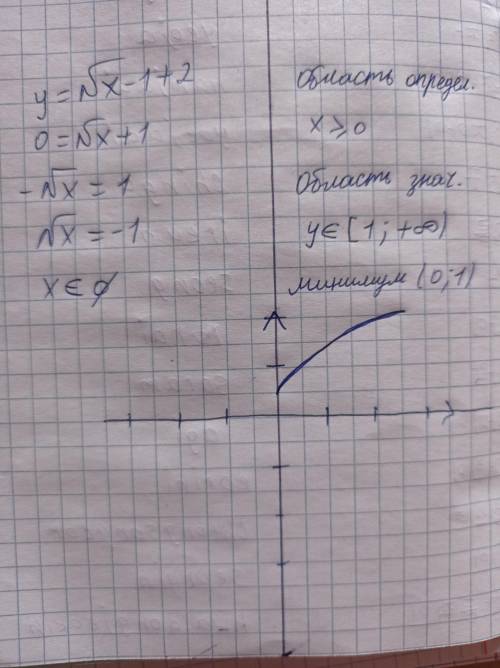 y = √x - 1 + 2
0 = √x + 1
-√x = 1
√x = -1
x ∈ ∅
Область определ.
x ⩾ 0
Область знач.
y ∈ [1; +∞)
минимум (0;1)